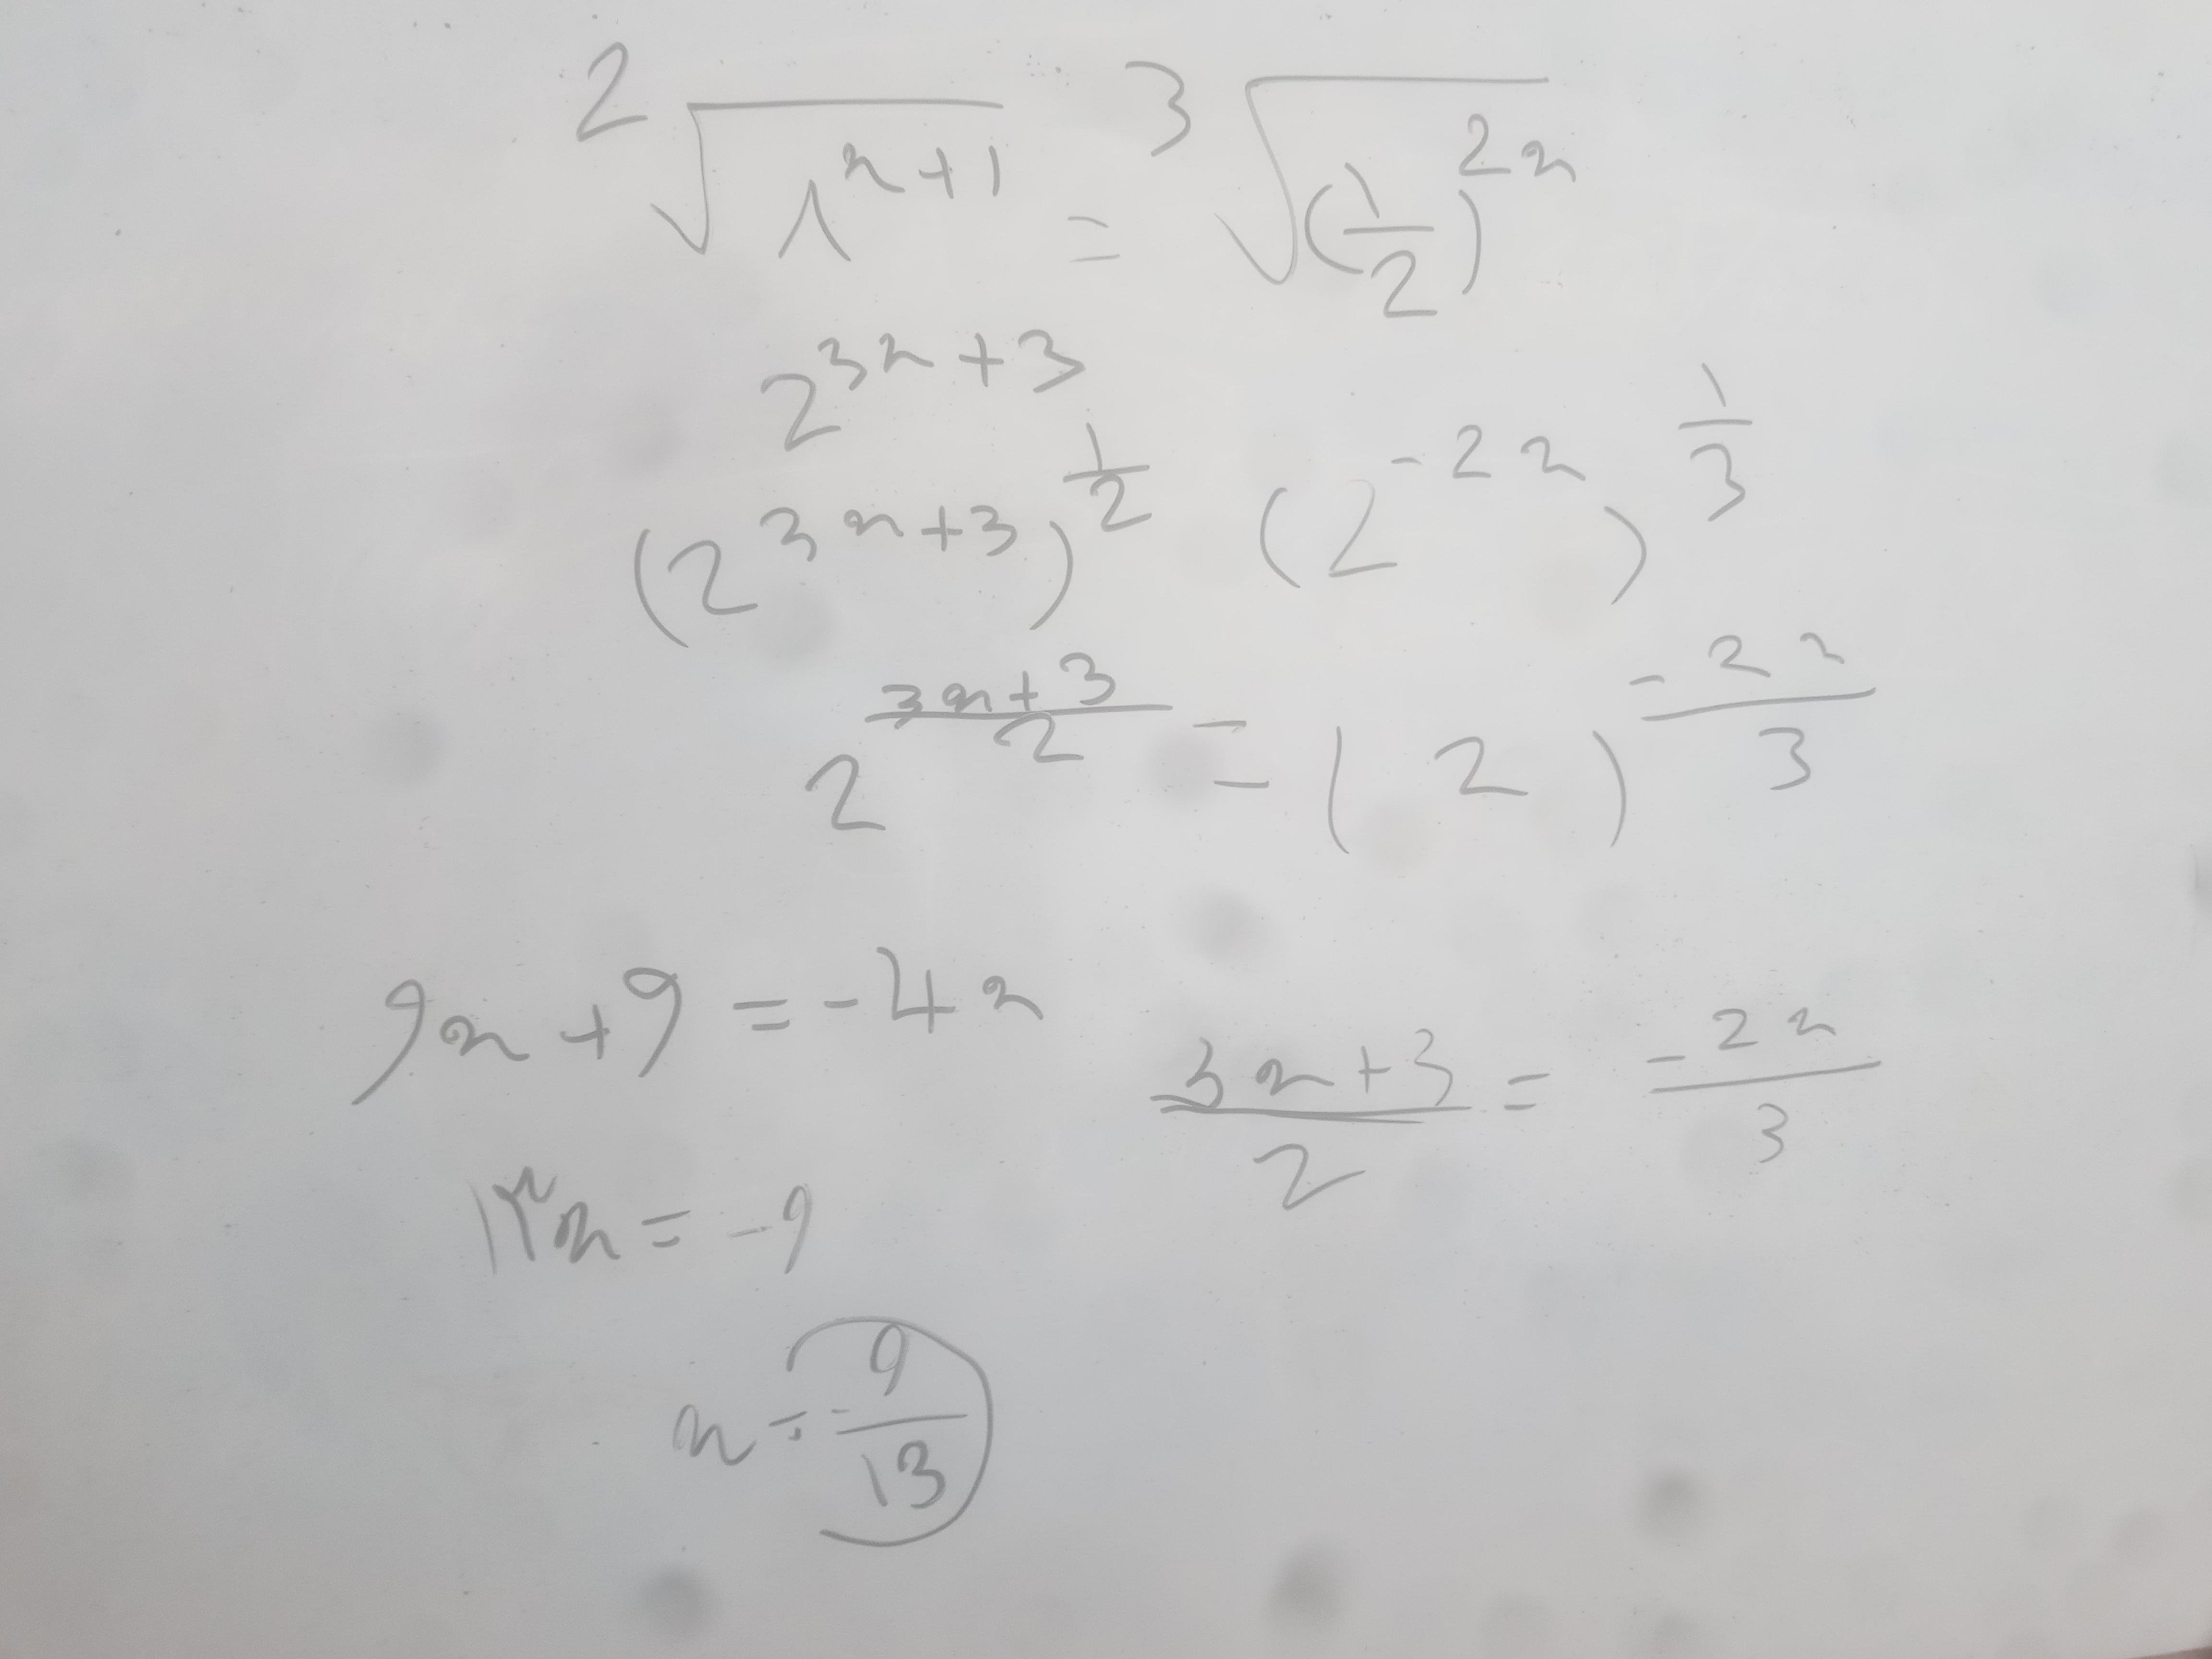 ²√(۸^(x+1)) = ³√((1/2)^(2x))
2^(3x+3)
(2^(3x+3))^(1/2) (2^(-2x))^(1/3)
2^((3x+3)/2) = (2)^(-2x/3)
9x+9 = -4x
(3x+3)/2 = -2x/3
۱۳x = -9
x = -9/13